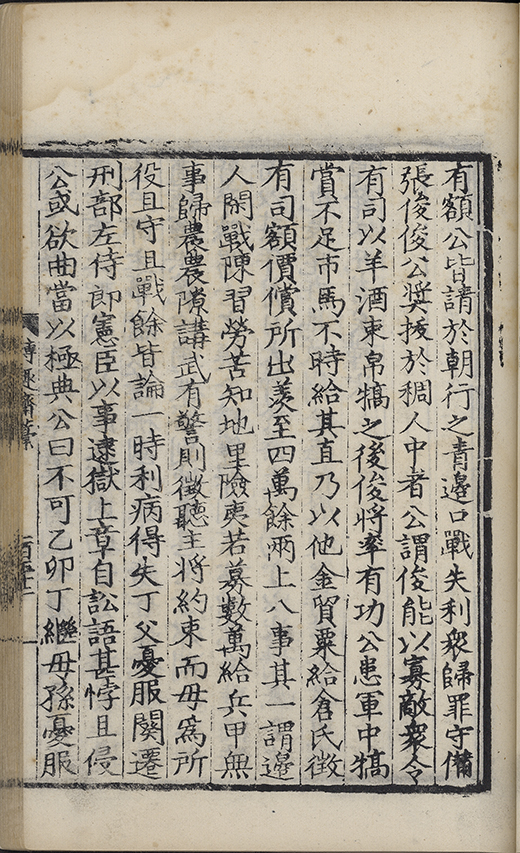 有額公皆請於朝行之青邊口戰失利衆歸罪守備
張俊俊公奬抜於稠人中者公謂俊能以寡敵衆令
有司以羊酒束帛犒之後俊將率有功公患軍中犒
賞不足市馬不時給其直乃以他金貿粟給倉氏徴
有司額價償所出羨至四萬餘兩上八事其一謂邊
人閑戰陳習勞苦知地里險夷若募數萬給兵甲無
事歸農農隙講武有警則徴聽主將約束而毋爲所
役且守且戰餘皆論一時利病得失丁父憂服闋遷
刑部左侍郎憲臣以事逮獄上章自訟語甚悖且侵
公或欲曲當以極典公曰不可乙卯丁繼母孫憂服
博趣齋藁